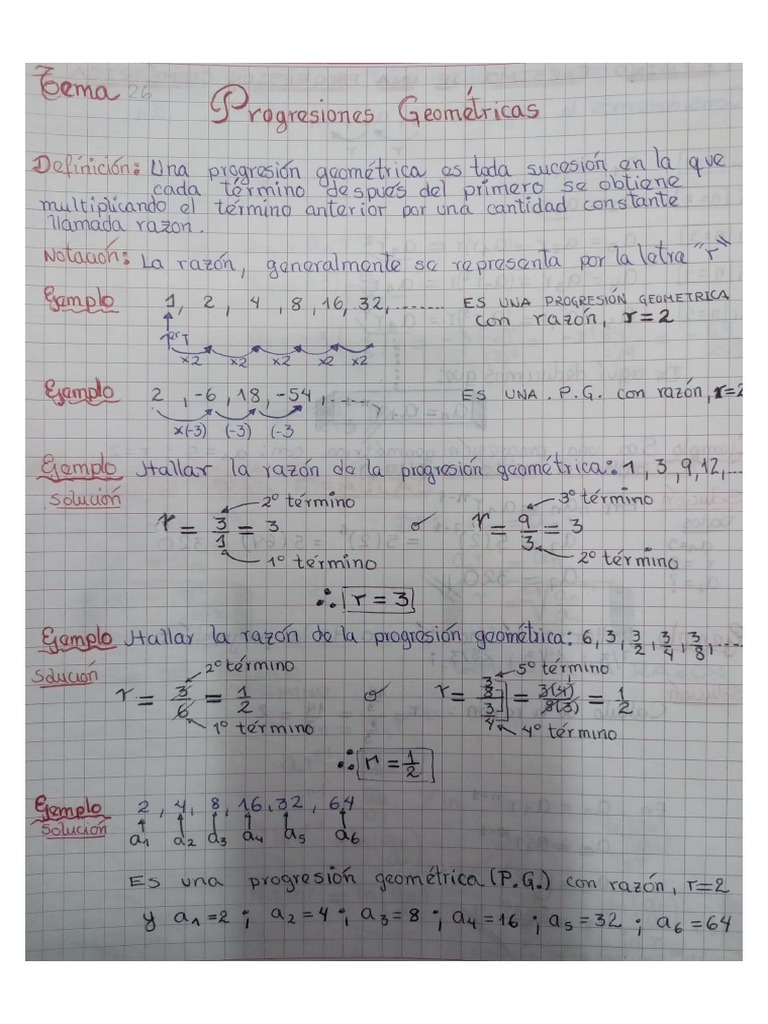 Tema 26
Progresiones Geométricas
Definición: Una progresión geométrica es toda sucesión en la que
cada término después del primero se obtiene
multiplicando el término anterior por una cantidad constante
llamada razon.
Notación: La razón, generalmente se representa por la letra "r"
Ejemplo 1, 2, 4, 8, 16, 32, ....... ES UNA PROGRESIÓN GEOMETRICA
con razón, r=2
1er T
x2 x2 x2 x2 x2
Ejemplo 2, -6, 18, -54, ...... ES UNA. P.G. con razón, r=2
x(-3) (-3) (-3
Ejemplo Hallar la razón de la progresión geométrica: 1, 3, 9, 12, ...
Solución
2º término 3º término
r = 3/1 = 3 o r = 9/3 = 3
1º término 2º término
∴ r = 3
Ejemplo Hallar la razón de la progresión geométrica: 6, 3, 3/2, 3/4, 3/8, ....
Solución
2º término 5º término
r = 3/6 = 1/2 o r = 3/8 / 3/4 = 3(4)/8(3) = 1/2
1º término 4º término
∴ r = 1/2
Ejemplo 2, 4, 8, 16, 32, 64
Solución a1 a2 a3 a4 a5 a6
Es una progresión geométrica (P.G.) con razón, r=2
y a1=2 ; a2=4 ; a3=8 ; a4=16 ; a5=32 ; a6=64